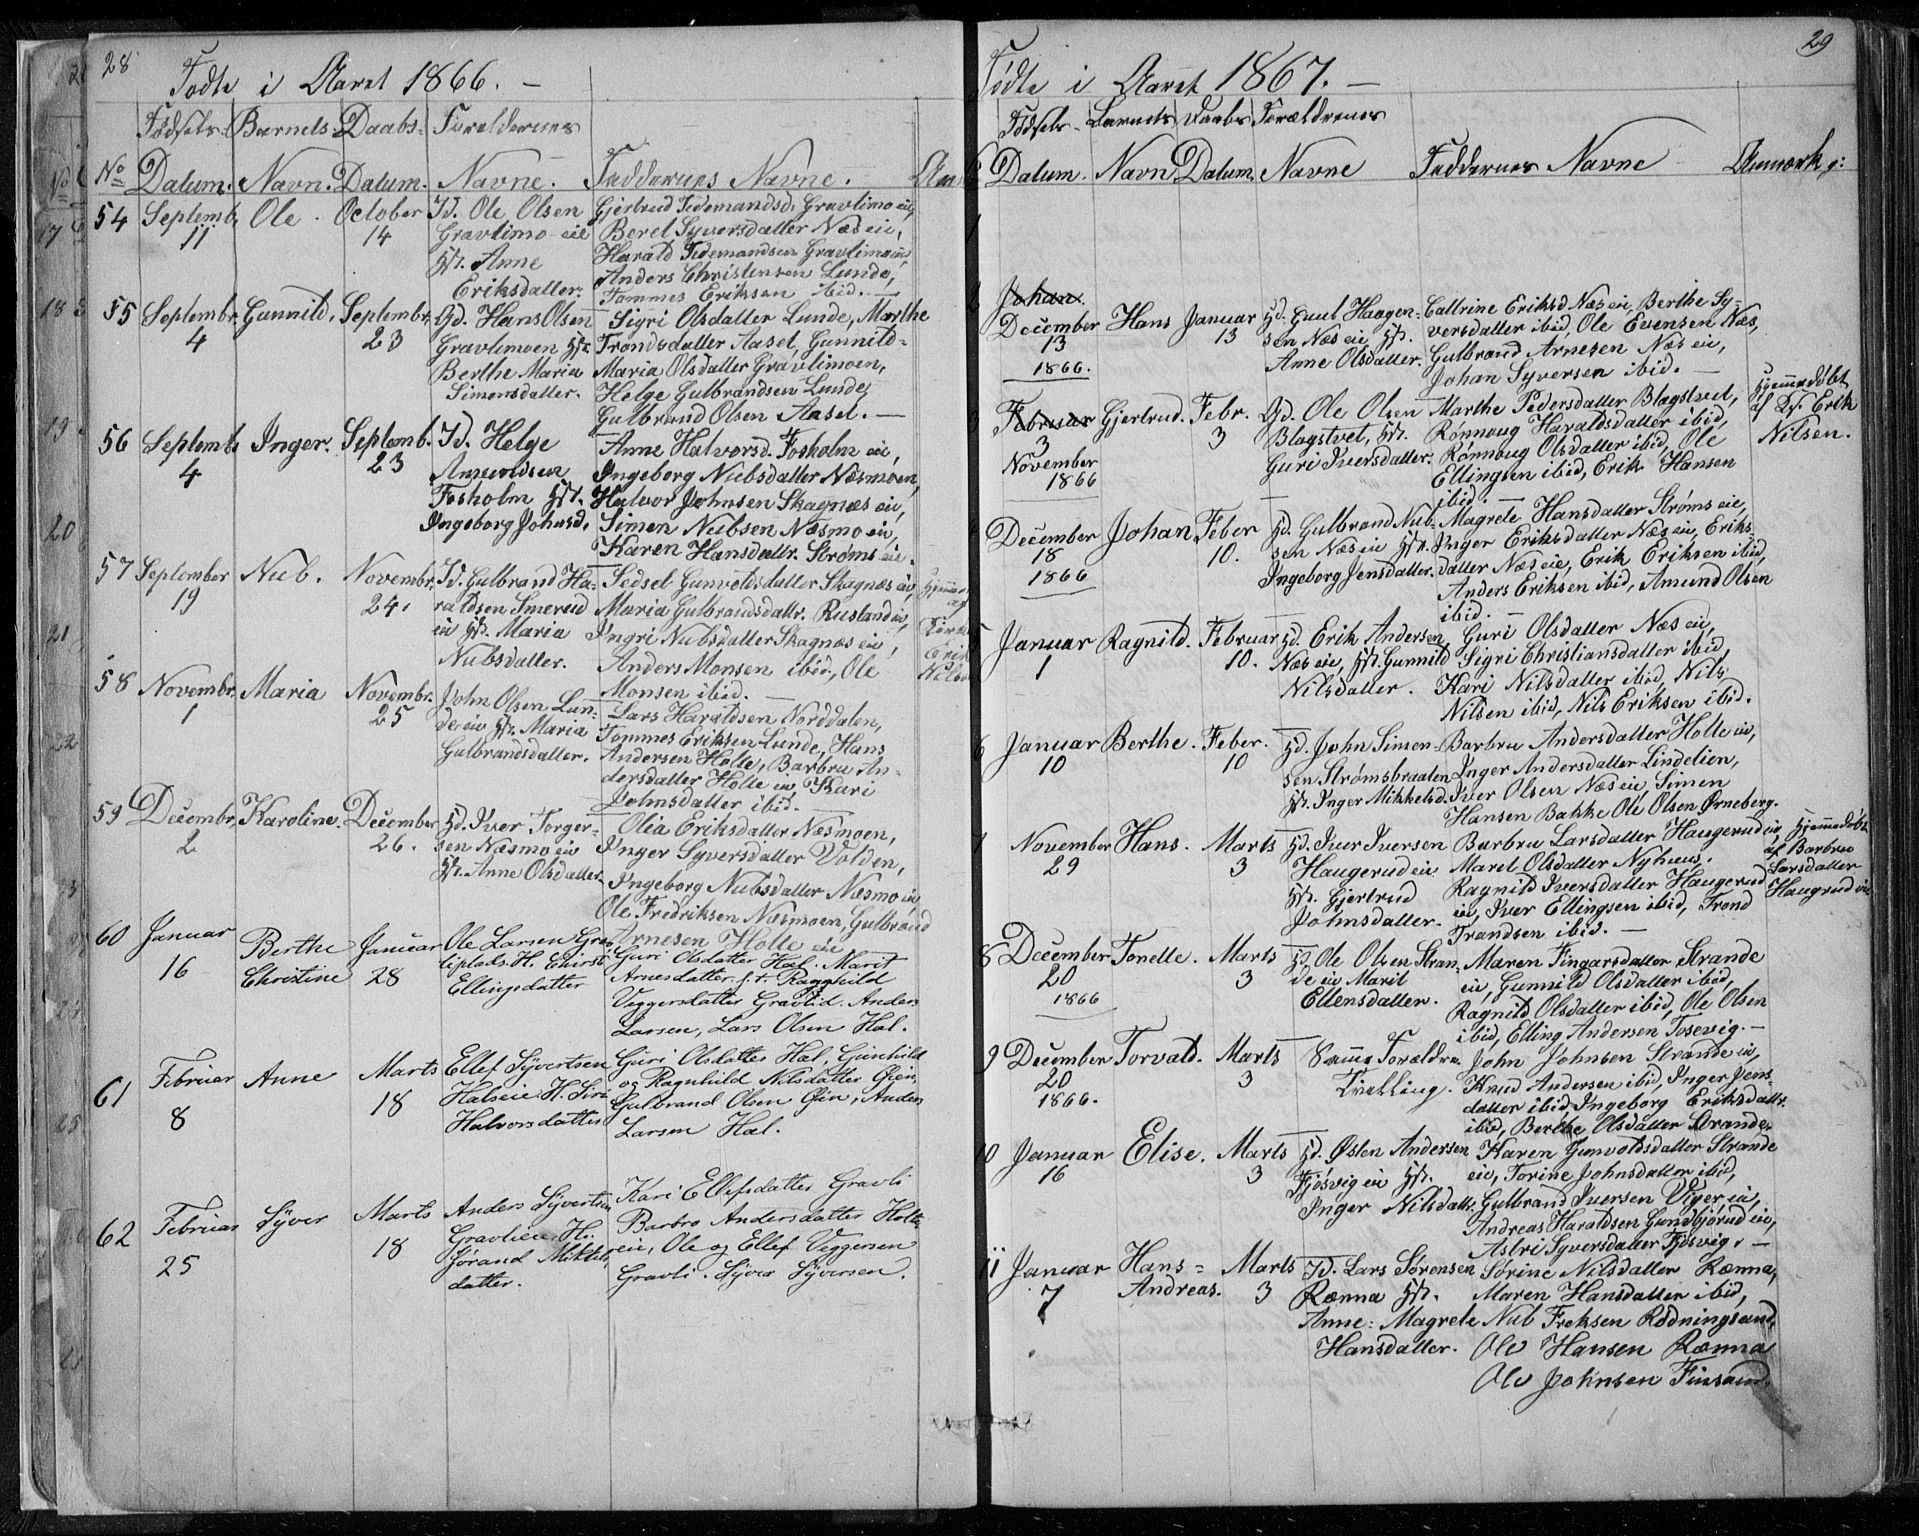 28
Fødte i Aaret 1866. —
Fødsels- Barnets Daabs- Forældrenes
No Datum. Navn. Datum. Navne. Faddernes Navne.
54 Septemb. 11 Ole October 14
Gd. Ole Olsen
Gravlimo eie
Hst. Anne
Eriksdatter.
Gjertrud Tedemandsd. Gravlimo eie,
Beret Syversdatter Næs eie,
Harald Tedemandsen Gravlimoeie
Anders Christensen Lunde,
Tommes Eriksen ibid. —
55 Septembr. 4 Gunnild. Septembr. 23
Gd. Hans Olsen
Gravlimoen Hst.
Berthe Maria
Simensdatter.
Sigri Olsdatter Lunde, Marthe
Trondsdatter Aasel, Gunnild-
Maria Olsdatter Gravlimoen,
Helge Gulbrandsen Lunde
Gulbrand Olsen Aasel. —
56 Septemb. 4 Inger. Septemb. 23
Id. Helge
Amundsen
Fosholm Hst.
Ingeborg Johnsd.
Anne Halvorsd. Fosholm eie,
Ingeborg Nubsdatter Næsmoen,
Halvor Johnsen Skagnæs eie,
Simen Nubsen Næsmo eie,
Karen Hansdattr. Strøms eie.
57 September 19 Nub. Novembr. 24.
Id. Gulbrand Ha-
raldsen Smerud
eie Hst. Maria
Nubsdatter.
Sedsel Gunvoldsdatter Skagnæs eie,
Maria Gulbrandsdattr. Rusland eie,
Ingri Nubsdatter Skagnæs eie,
Anders Monsen ibid, Ole
Monsen ibid. —
58 Novembr. 1 Maria Novembr. 25
John Olsen Lun-
de eie Hst. Maria
Gulbrandsdatter.
Lars Haraldsen Norddalen,
Tommes Eriksen Lunde, Hans
Andersen Holte, Barbru An-
dersdatter Holte eie, Kari
Johnsdatter ibid. —
59 Decembr. 2 Karoline. December 26.
Hd. Iver Torger-
sen Næsmo eie
Hst. Anne Olsdatter
Olia Eriksdatter Næsmoen,
Inger Syversdatter Volden,
Ingeborg Nubsdatter Næsmo eie
Ole Fredriksen Næsmoen, Gulbrand
Arnesen Holte eie
60 Januar 16 Berthe Christine Januar 28
Ole Larsen Grav
liplads. H. Chirst
Ellingsdatter
Guri Olsdatter Hæl. Marit
Arnesdatter f.t. Ragnhild
Veggersdatter Gravlid. Anders
Larsen, Lars Olsen Hæl.
61 Februar 8 Anne Marts 18
Ellef Syvertsen
Halseie. H. Siri
Halvorsdatter
Guri Olsdatter Hæl, Gunhild
og Ragnhild Nilsdatter Øien,
Gulbrand Olsen Øin, Anders
Larsen Hæl.
62 Februar 25 Syver Marts 18
Anders Syvertsen
Gravlieie H.
Jørand Mikkels
datter.
Kari Ellefsdatter Gravli
Barbro Andersdatter Holte
eie, Ole og Ellef Veggersen
Gravli. Syver Syversen.
29
Fødte i Aaret 1867. —
Fødsels- Barnets Daabs Forældrenes
Datum. Navn Datum. Navne Faddernes Navne Anmærkg:
1
2 Johan.
December 13 1866. Hans Januar 13
Hd. Guul Haagen-
sen Næs eie Hst.
Anne Olsdatter.
Cattrine Eriksd Næs eie, Berthe Sy-
versdatter ibid, Ole Evensen Næs,
Gulbrand Arnesen Næs eie,
Johan Syversen ibid. —
3 Februar 3
November 1866 Gjertrud. Febr. 3
Gd. Ole Olsen
Blagstvet, Hst.
Guri Iversdatter.
Marthe Pedersdatter Blagstvet,
Rønnoug Haraldsdatter ibid,
Rønnoug Olsdatter ibid, Ole
Ellingsen ibid, Erik Hansen
ibid. —
Hjemmedøbt
af Ks. Erik
Nilsen.
4 December 18 1866 Johan Feber 10.
Hd. Gulbrand Nub-
sen Næs eie Hst.
Ingeborg Jensdatter.
Magrete Hansdatter Strøms eie,
Inger Eriksdatter Næs eie, Eriks-
datter Næs eie, Erik Eriksen ibid,
Anders Eriksen ibid, Amund Olsen
ibid.
5 Januar 1 Ragnild. Februar 10.
Hd. Erik Andersen
Næs eie, Hst. Gunnild
Nilsdatter.
Guri Olsdatter Næs eie,
Sigri Christiansdatter ibid,
Kari Nilsdatter ibid, Nils
Nilsen ibid, Nils Eriksen ibid.
6 Januar 10 Berthe. Feber. 10
Hd. John Simen-
sen Strømsbraaten
Hst. Inger Mikkelsd.
Barbru Andersdatter Holte eie,
Inger Andersdatter Lindelien,
Iver Olsen Næs eie, Simen
Hansen Bakke Ole Olsen Ørneberg.
November 29 Hans. Marts 3
Hd. Iver Iversen
Haugerud eie
Hst. Gjertrud
Johnsdatter.
Barbru Larsdatter Haugerud eie,
Maret Olsdatter Nyhuus,
Ragnild Iversdatter Haugerud
eie, Iver Ellingsen ibid, Trond
Trondsen ibid. —
Hjemmedøbt
af Barbru
Larsdatter
Haugrud eie
8 December 20 1866 Tonette. Marts 3
Hd. Ole Olsen Stran-
de eie Marit
Ellensdatter.
Maren Fingarsdatter Strande
eie, Gunnild Olsdatter ibid,
Ragnild Olsdatter ibid, Ole Olsen
ibid, Elling Andersen Tosevig. —
9 December 20 1866. Torvald. Marts 3
Samme Forældre.
Tvilling.
John Johnsen Strande eie,
Knud Andersen ibid, Inger Jens-
datter ibid, Ingeborg Eriksdattr.
ibid, Berthe Olsdatter Strande.
10 Januar 16 Elise. Marts 3
Hd. Østen Andersen
Fjøsvig eie Hst.
Inger Nilsdattr.
Karen Gunvoldsdatter Strande
eie, Torine Johnsdatter ibid,
Gulbrand Iversen Viger eie,
Andreas Haraldsen Gundbjørud eie,
Astri Syversdatter Fjøsvig. —
11 Januar 7 Hans- Andreas. Marts 3
Id. Lars Sørensen
Rænna Hst.
Anne-Magrete
Hansdatter.
Sørine Nilsdatter Rænna,
Maren Hansdatter ibid,
Nub Freksen Rødningsand,
Ole Hansen Rænna
Ole Johnsen Finsand.